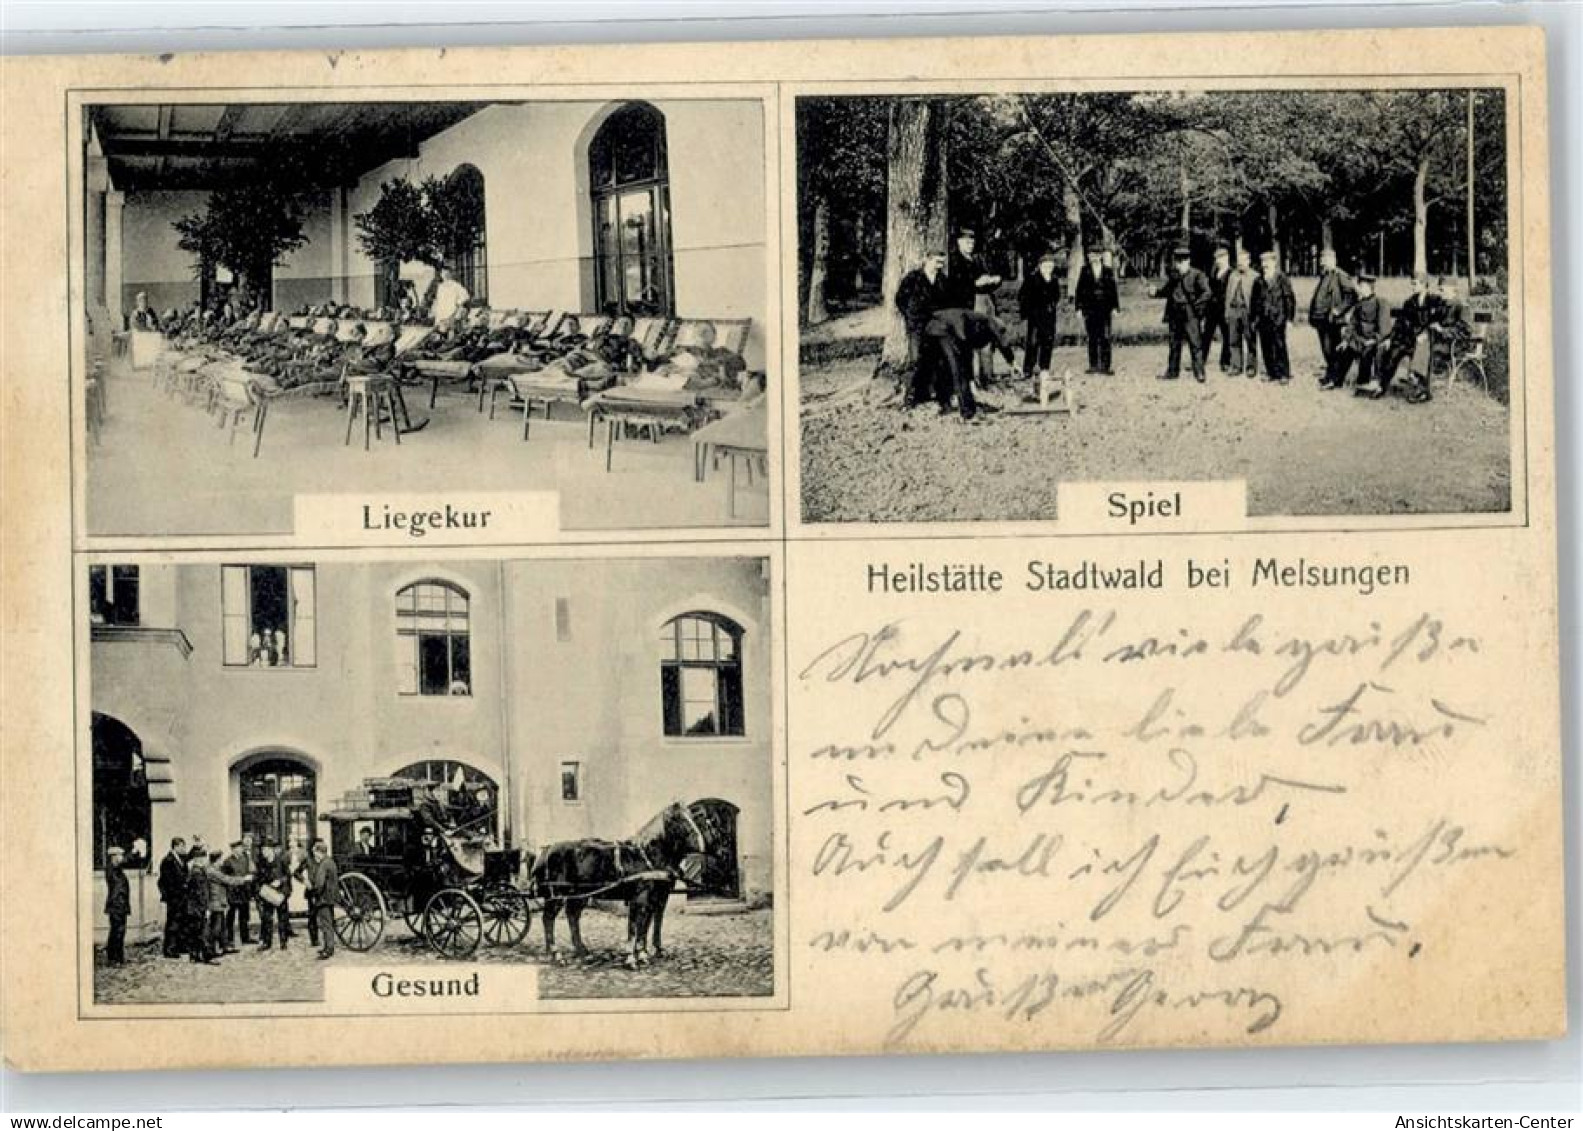 Liegekur
Spiel
Gesund
Heilstätte Stadtwald bei Melsungen
Nochmals viele grüße
an Deine liebe Frau
und Kinder,
Auch soll ich Euch grüßen
von meiner Frau.
Georg
www.delcampe.net
Ansichtskarten-Center